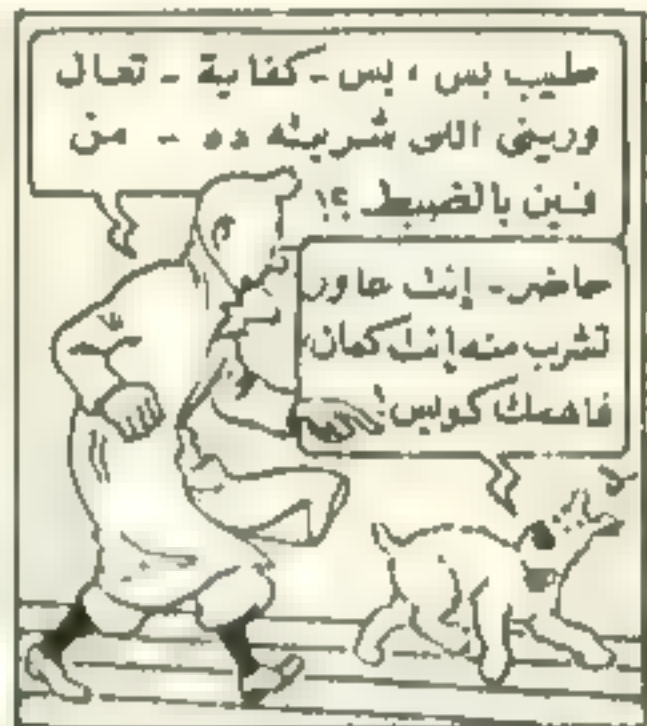 طيب بس ، بس - كفاية - تعال
وريني اللي شربته ده - من
فين بالضبط ؟!
حاضر - إنت عاوز
تشرب منه إنت كمان،
فاهمك كويس!